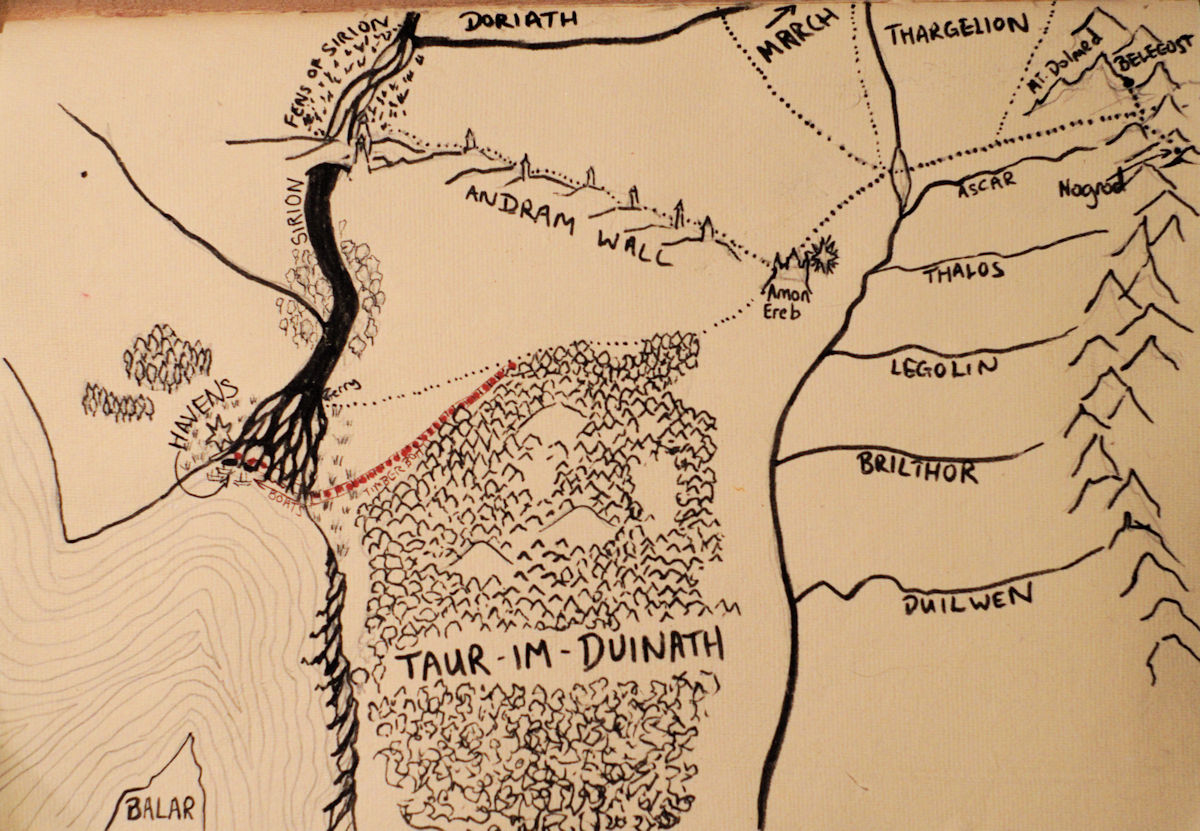 DORIATH
MARCH
THARGELION
MT. Dolmed
BELEGOST
FENS OF SIRION
SIRION
ANDRAM WALL
ASCAR
Nogrod
THALOS
Amon
Ereb
LEGOLIN
HAVENS
ferry
BRILTHOR
TIMBER
BOATS
DUILWEN
TAUR-IM-DUINATH
BALAR